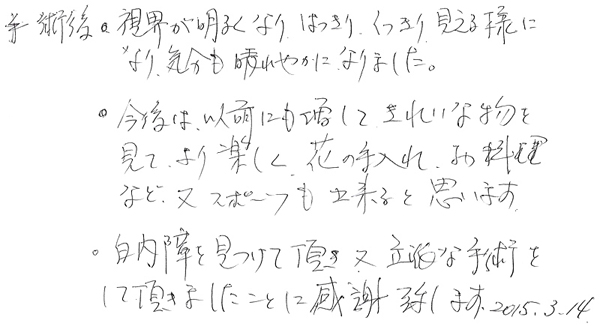 手術後 • 視界が明るくなり、はっきり、くっきり見える様に
なり、気分も晴れやかになりました。
• 今後は、以前にも増してきれいな物を
見て、より楽しく、花の手入れ、お料理
など、又スポーツも出来ると思います
• 白内障を見つけて頂き、又立派な手術を
して頂きましたことに感謝致します。2015.3.14